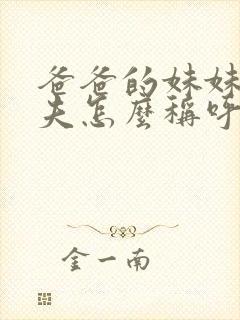 爸爸的妹妹
夫怎麼稱呼
金一南